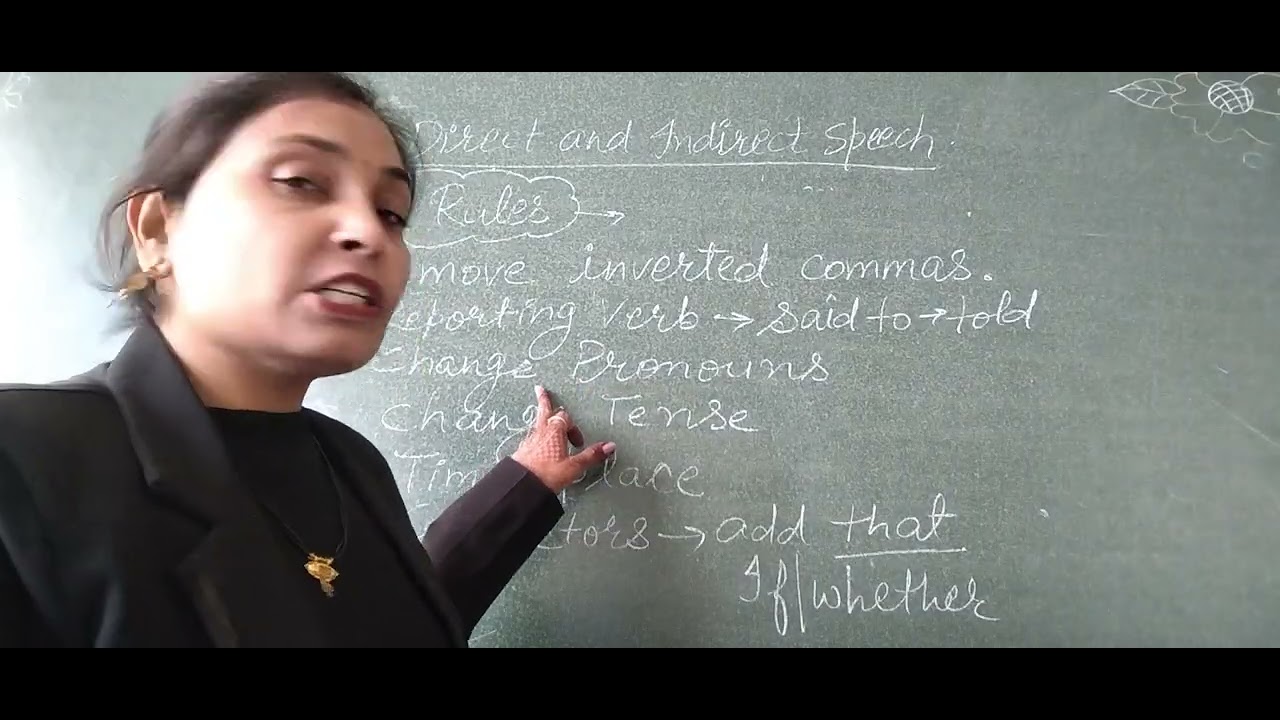 Direct and Indirect Speech.
Rules →
move inverted commas.
eporting verb → said to → told
Change Pronouns
Change Tense
Tim place
ctors → add that
If|whether